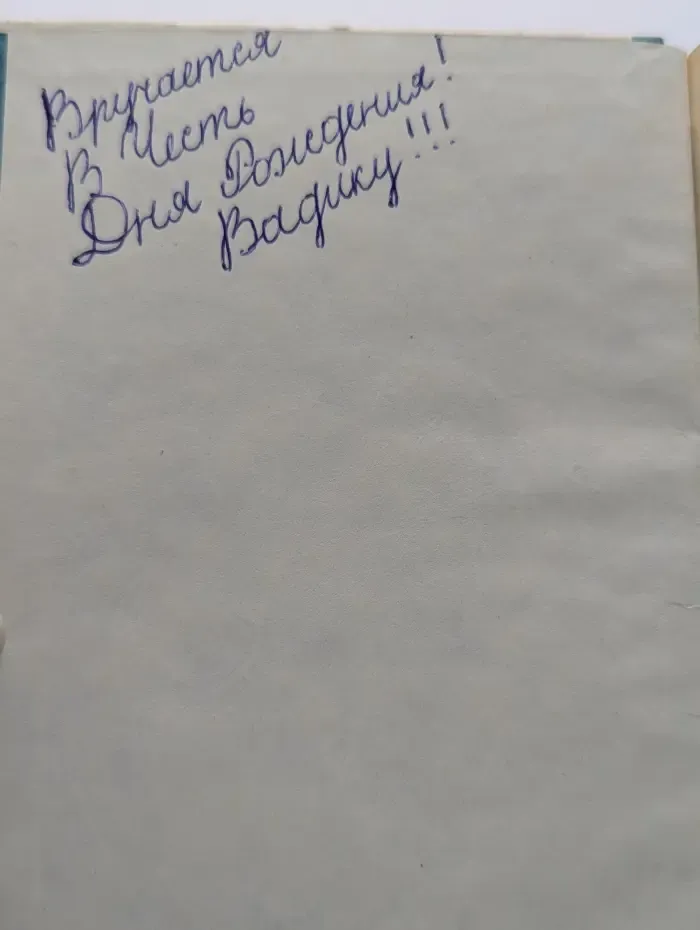 Вручается
В Честь
Дня Рождения!
Вадику!!!